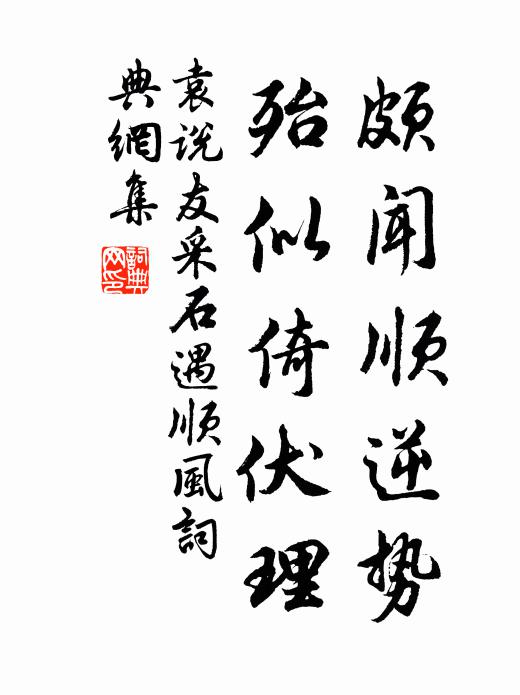 颇闻顺逆势
殆似倚伏理
袁说友采石遇顺风词
典網集
詞典网印